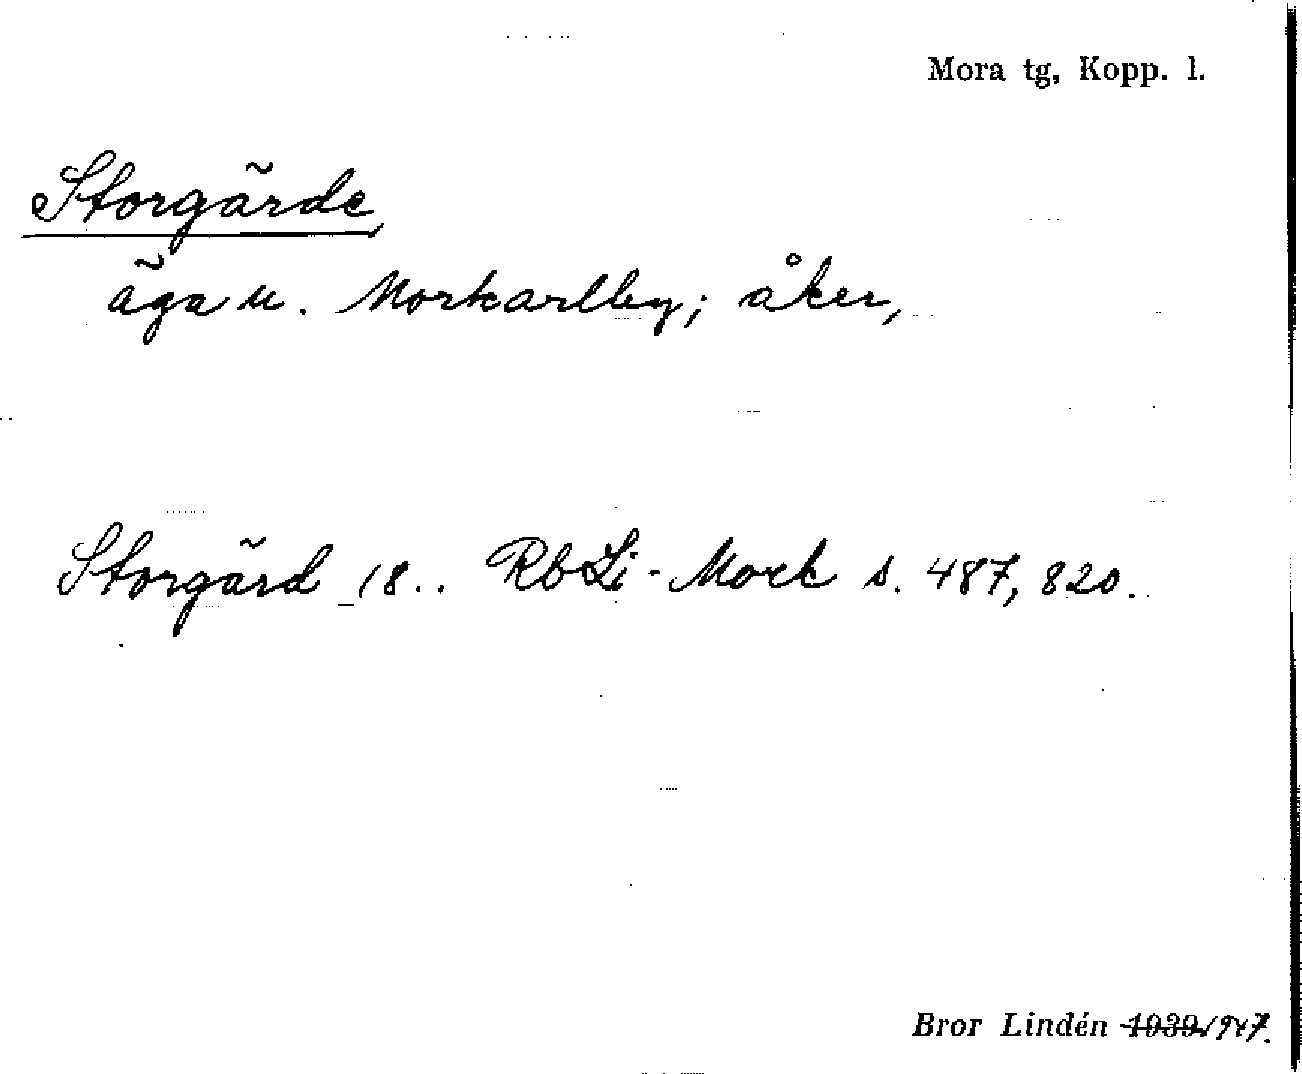 Mora tg, Kopp. l.
Storgärde,
äga u. Morkarlby; åker,
Storgärd 18.. RbLi-Mork s. 487, 820.
Bror Lindén 1939 1947.